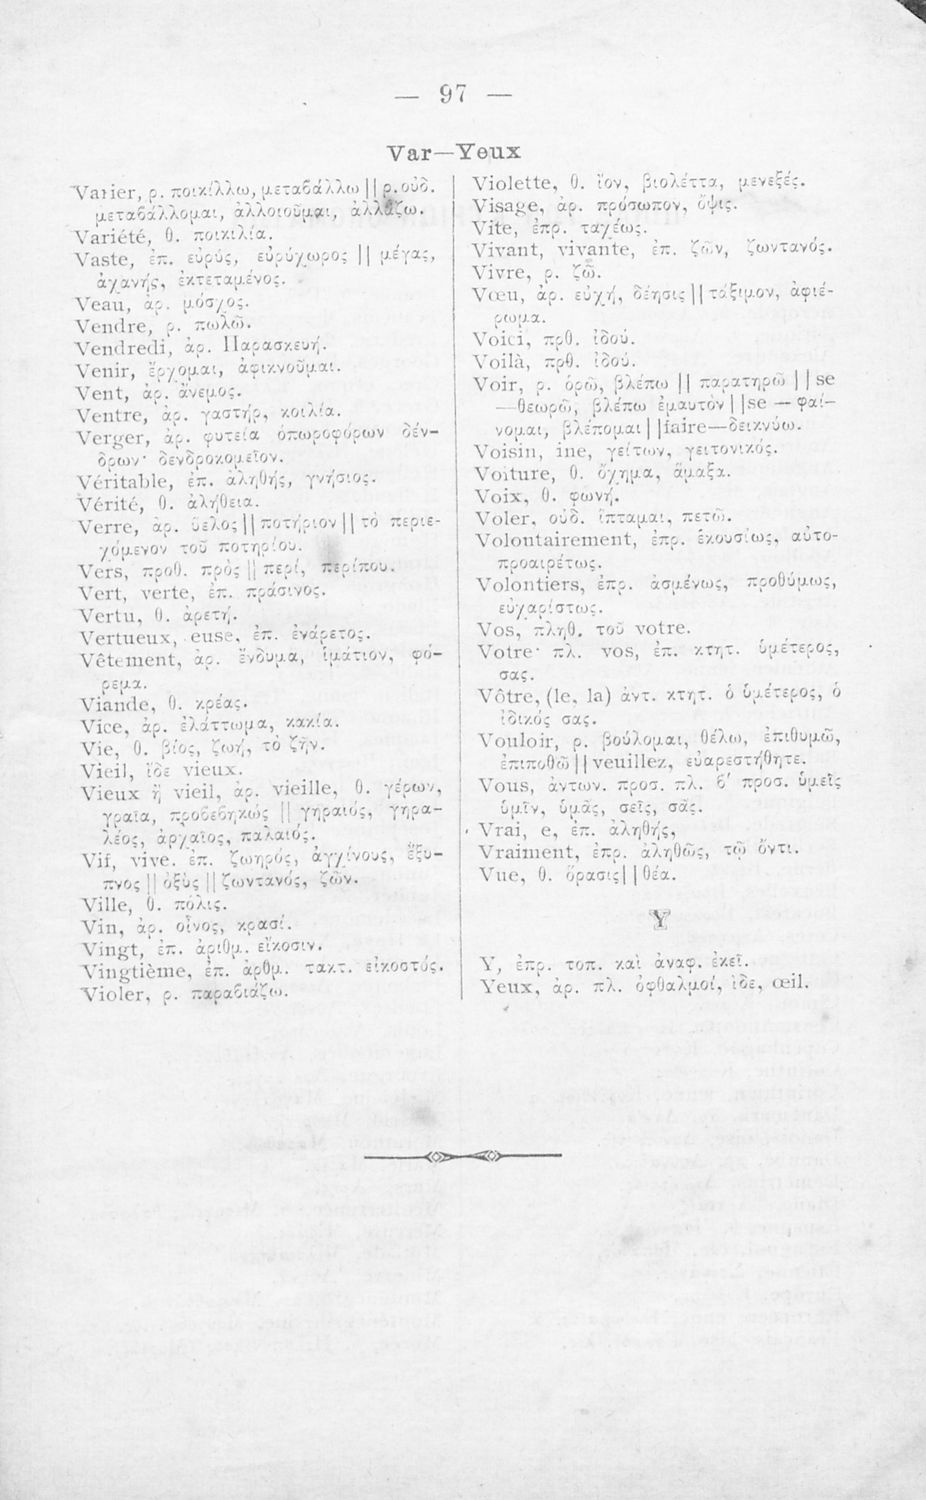 — 97 —
Var—Yeux
Varier, ρ. ποικίλλω, μεταβάλλω || ρ. οὐδ.
μεταβάλλομαι, ἀλλοιοῦμαι, ἀλλάζω.
Variété, θ. ποικιλία.
Vaste, ἐπ. εὐρύς, εὐρύχωρος || μέγας,
ἀχανής, ἐκτεταμένος.
Veau, ἀρ. μόσχος.
Vendre, ρ. πωλῶ.
Vendredi, ἀρ. Παρασκευή.
Venir, ἔρχομαι, ἀφικνοῦμαι.
Vent, ἀρ. ἄνεμος.
Ventre, ἀρ. γαστήρ, κοιλία.
Verger, ἀρ. φυτεία ὀπωροφόρων δέν-
δρων· δενδροκομεῖον.
Véritable, ἐπ. ἀληθής, γνήσιος.
Vérité, θ. ἀλήθεια.
Verre, ἀρ. ὕελος || ποτήριον || τὸ περιε-
χόμενον τοῦ ποτηρίου.
Vers, προθ. πρὸς || περί, περίπου.
Vert, verte, ἐπ. πράσινος.
Vertu, θ. ἀρετή.
Vertueux, euse, ἐπ. ἐνάρετος.
Vêtement, ἀρ. ἔνδυμα, ἱμάτιον, φό-
ρεμα.
Viande, θ. κρέας.
Vice, ἀρ. ἐλάττωμα, κακία.
Vie, θ. βίος, ζωή, τὸ ζῆν.
Vieil, ἴδε vieux.
Vieux ἢ vieil, ἀρ. vieille, θ. γέρων,
γραῖα, προβεβηκώς || γηραιός, γηρα-
λέος, ἀρχαῖος, παλαιός.
Vif, vive. ἐπ. ζωηρός, ἀγχίνους, ἔξυ-
πνος || ὀξὺς || ζωντανός, ζῶν.
Ville, θ. πόλις.
Vin, ἀρ. οἶνος, κρασί.
Vingt, ἐπ. ἀριθμ. εἴκοσιν.
Vingtième, ἐπ. ἀρθμ. τακτ. εἰκοστός.
Violer, ρ. παραβιάζω.
Violette, θ. ἴον, βιολέττα, μενεξές.
Visage, ἀρ. πρόσωπον, ὄψις.
Vite, ἐπρ. ταχέως.
Vivant, vivante, ἐπ. ζῶν, ζωντανός.
Vivre, ρ. ζῶ.
Vœu, ἀρ. εὐχή, δέησις || τάξιμον, ἀφιέ-
ρωμα.
Voici, πρθ. ἰδού.
Voilà, πρθ. ἰδού.
Voir, ρ. ὁρῶ, βλέπω || παρατηρῶ || se
—θεωρῶ, βλέπω ἐμαυτὸν || se — φαί-
νομαι, βλέπομαι || faire—δεικνύω.
Voisin, ine, γείτων, γειτονικός.
Voiture, θ. ὄχημα, ἅμαξα.
Voix, θ. φωνή.
Voler, οὐδ. ἵπταμαι, πετῶ.
Volontairement, ἐπρ. ἑκουσίως, αὐτο-
προαιρέτως.
Volontiers, ἐπρ. ἀσμένως, προθύμως,
εὐχαρίστως.
Vos, πληθ. τοῦ votre.
Votre· πλ. vos, ἐπ. κτητ. ὑμέτερος,
σας.
Vôtre, (le, la) ἀντ. κτητ. ὁ ὑμέτερος, ὁ
ἰδικός σας.
Vouloir, ρ. βούλομαι, θέλω, ἐπιθυμῶ,
ἐπιποθῶ || veuillez, εὐαρεστήθητε.
Vous, ἀντων. προσ. πλ. β′ προσ. ὑμεῖς
ὑμῖν, ὑμᾶς, σεῖς, σᾶς.
Vrai, e, ἐπ. ἀληθής,
Vraiment, ἐπρ. ἀληθῶς, τῷ ὄντι.
Vue, θ. ὅρασις || θέα.
Y
Y, ἐπρ. τοπ. καὶ ἀναφ. ἐκεῖ.
Yeux, ἀρ. πλ. ὀφθαλμοί, ἰδε, œil.